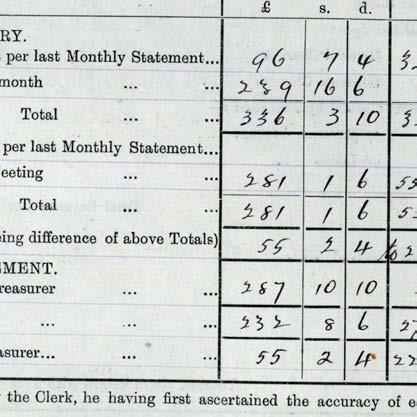 £ s. d.
RY.
s per last Monthly Statement... 96 7 4
month ... ... 239 16 6
Total ... 336 3 10
per last Monthly Statement...
eeting ... ... 281 1 6 55
Total ... 281 1 6
ing difference of above Totals) 55 2 4
EMENT.
reasurer ... 287 10 10
... ... 232 8 6
asurer... ... ... 55 2 4 22
the Clerk, he having first ascertained the accuracy of e